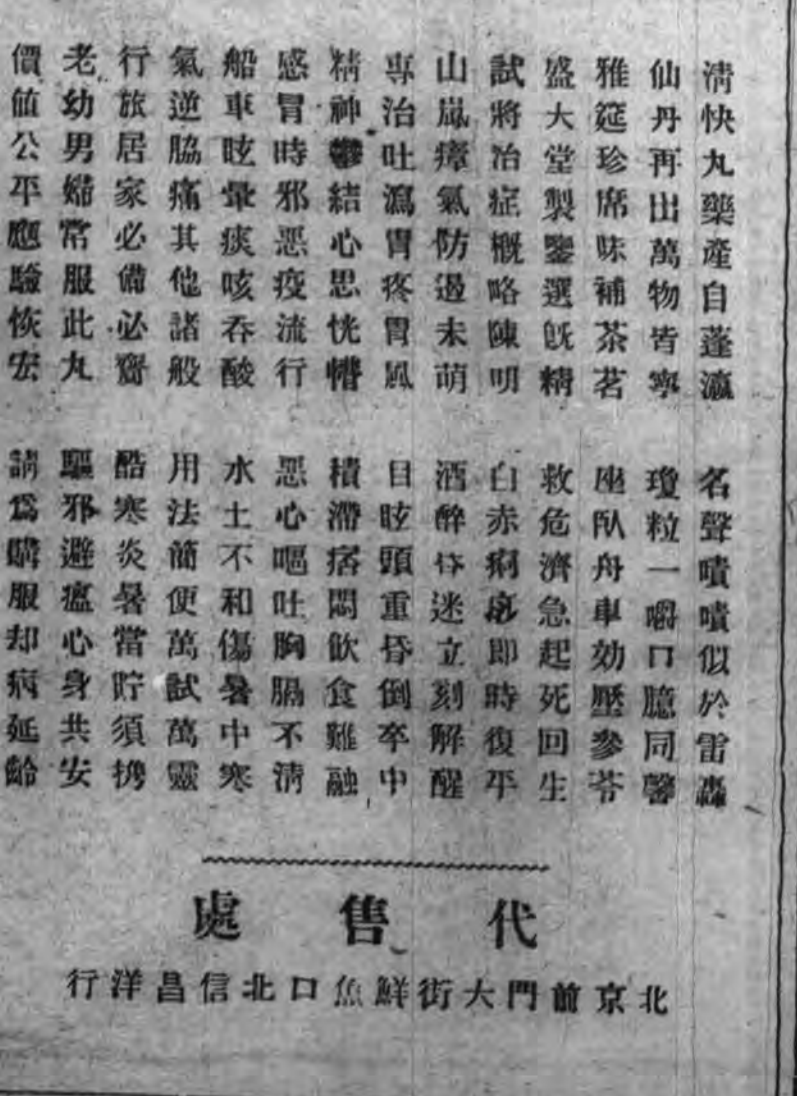 清快丸藥產自蓬瀛　名聲嘖嘖似於雷轟
仙丹再出萬物皆寧　瓊粒一嚼口臆同馨
雅筵珍席味補茶茗　座臥舟車効壓參苓
盛大堂製鑒選旣精　救危濟急起死回生
試將治症概略陳明　白赤痢疾即時復平
山嵐瘴氣防遏未萌　酒醉昏迷立刻解醒
專治吐瀉胃疼胃風　目眩頭重昏倒卒中
精神鬱結心思恍惛　積滯痞悶飲食難融
感冒時邪惡疫流行　惡心嘔吐胸膈不清
船車眩暈痰咳吞酸　水土不和傷暑中寒
氣逆脇痛其他諸般　用法簡便萬試萬靈
行旅居家必備必齎　酷寒炎暑當貯須携
老幼男婦常服此丸　驅邪避瘟心身共安
價值公平應驗恢宏　請爲購服却病延齡
代售處
北京前門大街鮮魚口北信昌洋行